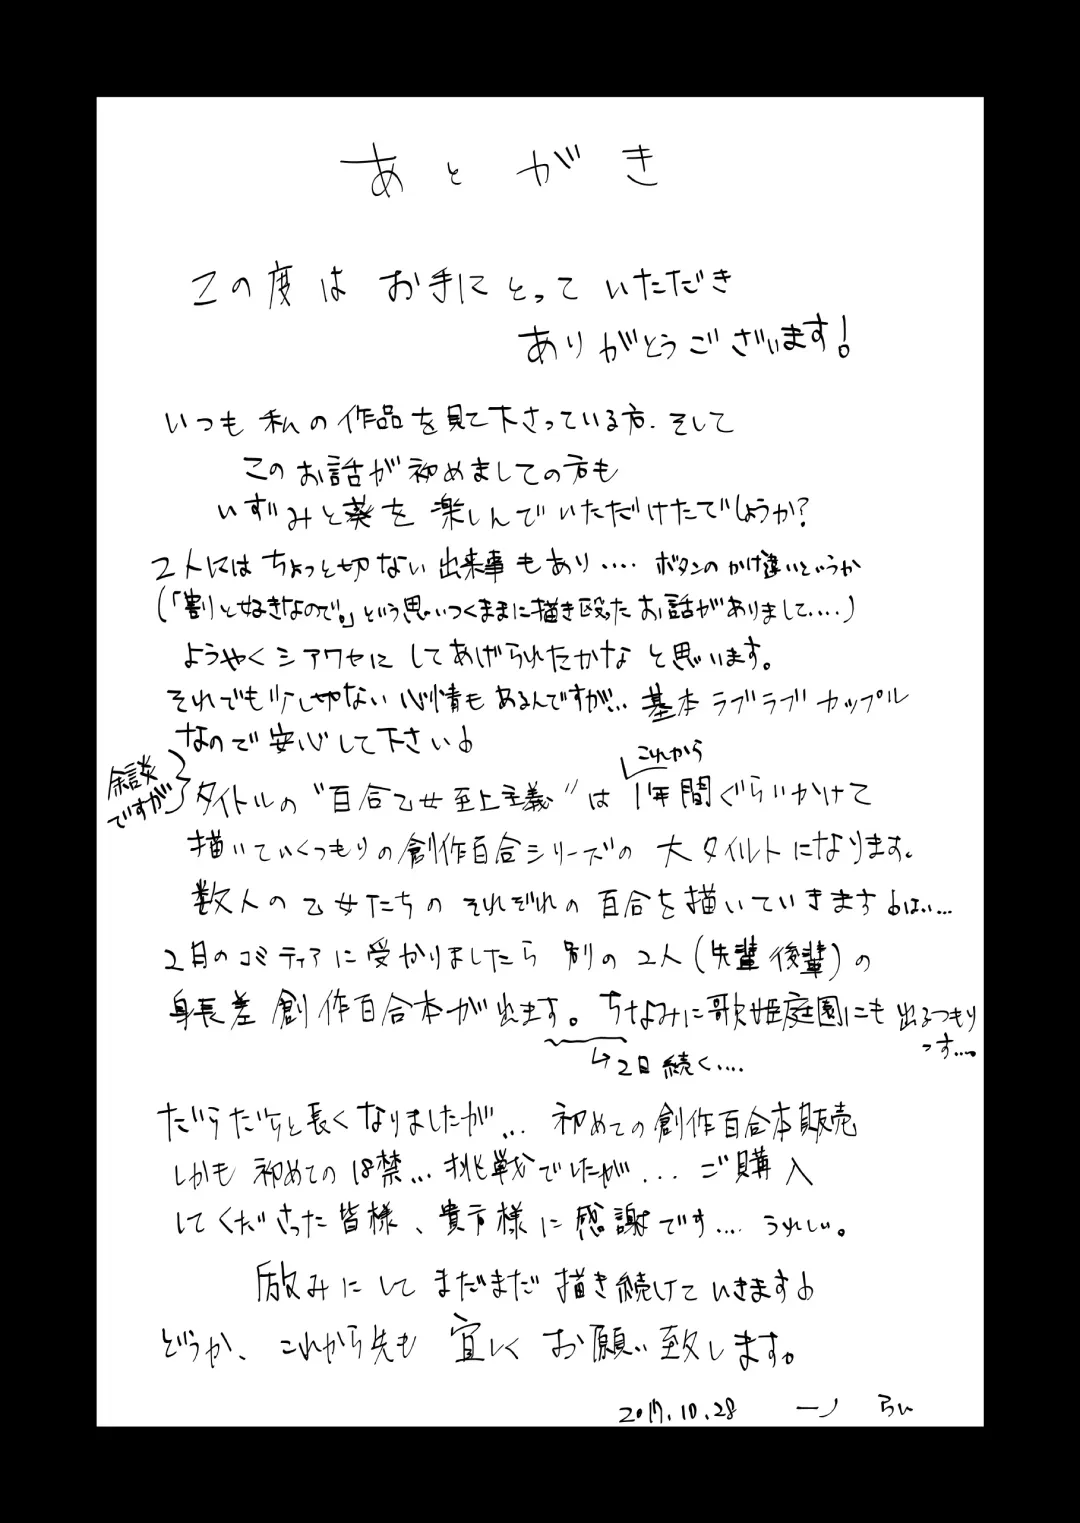 あとがき
この度は お手にとって いただき
ありがとうございます!
いつも 私の作品を見て下さっている方、そして
このお話が初めましての方も
いずみと葵を楽しんでいただけたでしょうか?
2人にはちょっと切ない出来事もあり.... ボタンのかけ違いというか
(「割と好きなので。」という思いつくままに描き殴ったお話がありまして....)
ようやくシアワセにしてあげられたかな と思います。
それでも少し切ない心情もあるんですが... 基本ラブラブカップル
なので安心して下さい♪
余談ですが
タイトルの"百合乙女至上主義"は これから1年間ぐらいかけて
描いていくつもりの創作百合シリーズの 大タイルトになります。
数人の乙女たちのそれぞれの百合を描いていきます♪はい...
2月のコミティアに受かりましたら 別の2人(先輩後輩)の
身長差創作百合本が出ます。ちなみに歌姫庭園にも出るつもりっす....
→2日続く....
だらだらと長くなりましたが... 初めての創作百合本販売
しかも初めての18禁... 挑戦でしたが... ご購入
してくださった皆様、貴方様に感謝です.... うれしい。
励みにしてまだまだ描き続けていきます♪
どうか、これから先も 宜しくお願い致します。
2017.10.28 一ノ らい